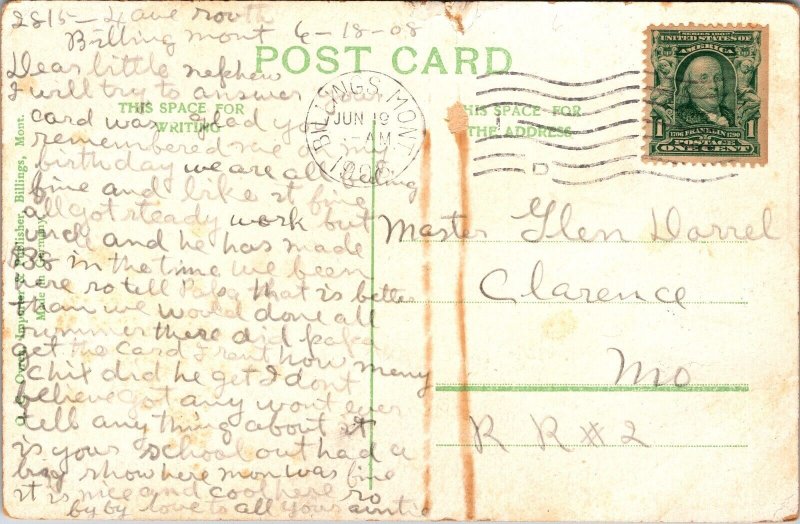 2815 - 4 ave south
Billing mont 6-18-08
Dear little nephew
I will try to answer your
card was glad you
remembered me on my
birthday we are all feeling
fine and like it fine
all got steady work but
and he has made
in the time we been
here so tell Papa that is better
than we would done all
summer there did papa
get the card I sent how many
chix did he get I dont
believe got any wont ever
tell any thing about it
is your school out had a
big show here mon was fine
it is nice and cool here so
by by love to all your auntie
POST CARD
THIS SPACE FOR
WRITING
THIS SPACE FOR
THE ADDRESS
BILLINGS, MONT.
JUN 19
-AM
1908
SERIES 1902
UNITED STATES OF
AMERICA
1706 FRANKLIN 1790
1 POSTAGE 1
ONE CENT
Master Glen Dorrel
Clarence
Mo
R R # 2
Importer & Publisher, Billings, Mont.
Made in Germany